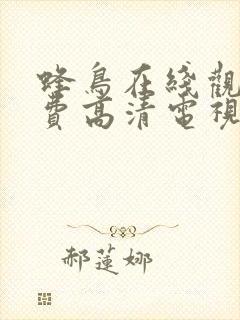 蜂鳥在綫觀
費高清電視
郝蓮娜